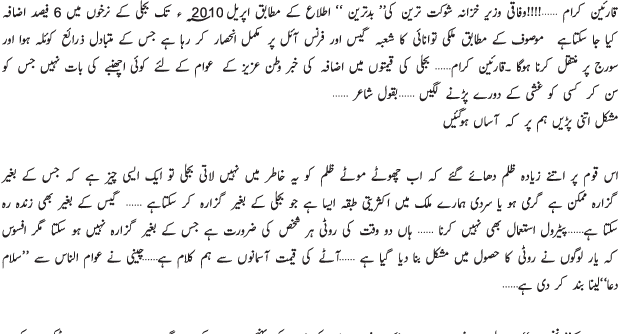 قارئین کرام ......!!!!وفاقی وزیر خزانہ شوکت ترین کی’’ بدترین ‘‘ اطلاع کے مطابق اپریل 2010 ء تک بجلی کے نرخوں میں 6 فیصد اضافہ
کیا جا سکتاہے موصوف کے مطابق ملکی توانائی کا شعبہ گیس اور فرنس آئل پر مکمل انحصار کر رہا ہے جس کے متبادل ذرائع کوئلہ ہوا اور
سورج پر منتقل کرنا ہوگا ۔قارئین کرام...... بجلی کی قیمتوں میں اضافہ کی خبر وطن عزیز کے عوام کے لئے کوئی اچھنبے کی بات نہیں جس کو
سن کر کسی کو غشی کے دورے پڑنے لگیں ......بقول شاعر ......
مشکل اتنی پڑیں ہم پر کہ آساں ہوگئیں
اس قوم پر اتنے زیادہ ظلم دھائے گئے کہ اب چھوٹے موٹے ظلم کو یہ خاطر میں نہیں لاتی بجلی تو ایک ایسی چیز ہے کہ جس کے بغیر
گزارہ ممکن ہے گرمی ہو یا سردی ہمارے ملک میں اکثریتی طبقہ ایسا ہے جو بجلی کے بغیر گزارہ کر سکتاہے ...... گیس کے بغیر بھی زندہ رہ
سکتا ہے......پیٹرول استعمال بھی نہیں کرنا ...... ہاں دو وقت کی روٹی ہر شخص کی ضرورت ہے جس کے بغیر گزارہ نہیں ہو سکتا مگر افسوس
کہ یار لوگوں نے روٹی کا حصول میں مشکل بنا دیا گیا ہے ......آٹے کی قیمت آسمانوں سے ہم کلام ہے......چینی نے عوام الناس سے ’’سلام
دعا‘‘لینا بند کر دی ہے......